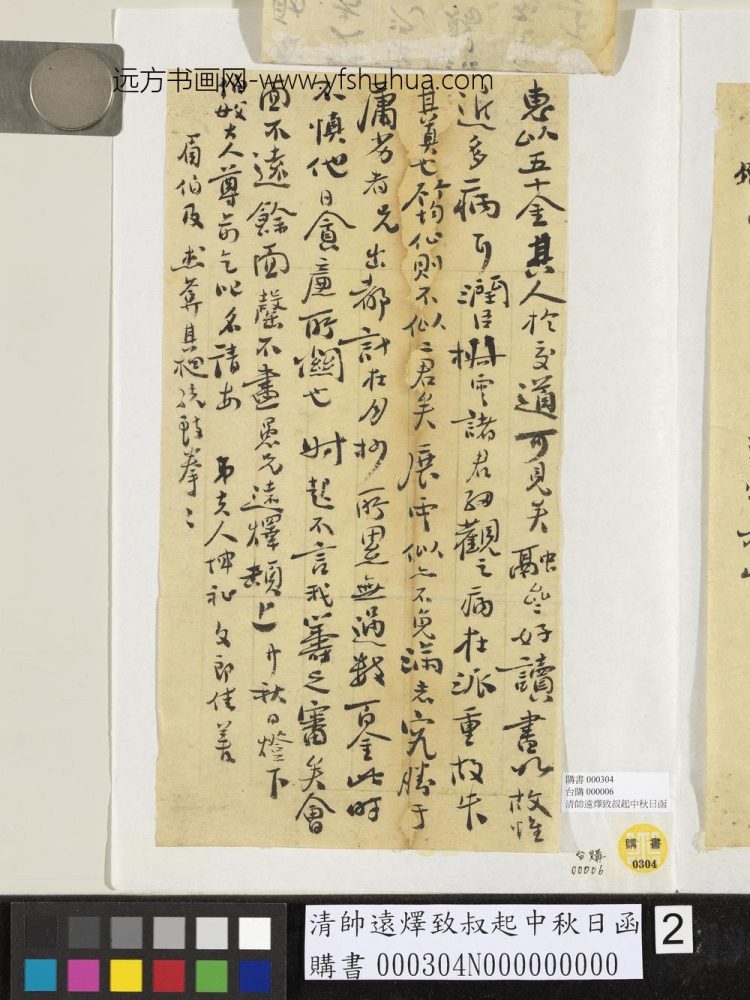 远方书画网-www.yfshuhua.com
惠以五十金其人於交道可見矣融峰好讀書以故惟
近多病耳潤臣楫雲諸君細觀之病在派重故失
其真也不矜他則不似二君矣展雲似亦不免滿志究勝于
庸劣者兄出都計在月杪所累無過數百金此時
不慎他日貪廉所關也叔起不言我籌之審矣會
面不遠餘面罄不盡愚兄遠燡頓上中秋日燈下
大人尊前乞叱名請安 弟夫人坤祉 文郎佳善
眉伯及 拳拳
購書 000304
台購 000006
清帥遠燡致叔起中秋日函
購書
0304
台購
00006
清帥遠燡致叔起中秋日函
購書 000304N000000000
2